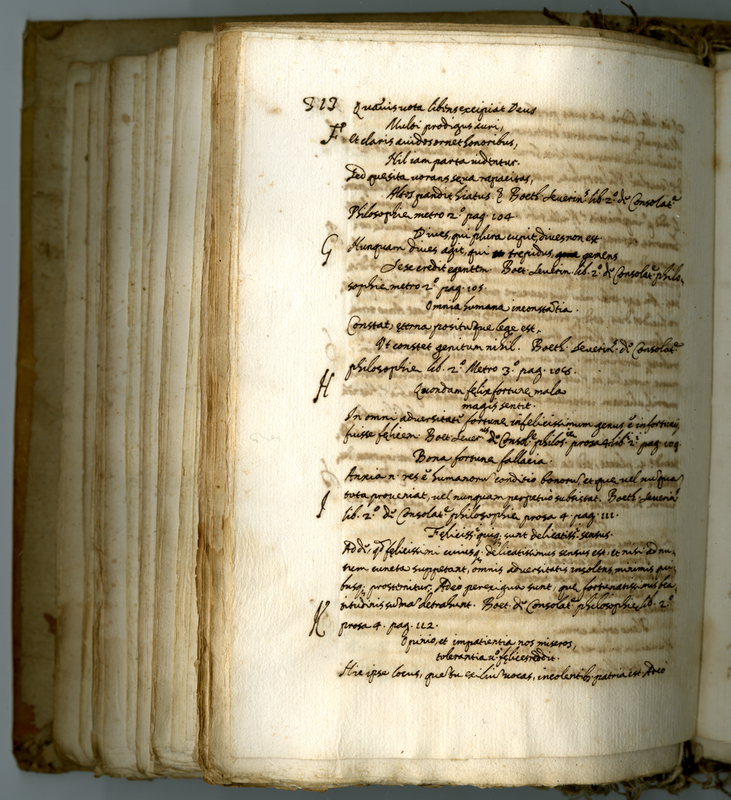 313 Quãuis uota libens excipiat Deus
Multi prodigus auri,
F Et claris auidos ornet honoribus,
Nil iam parta uidẽtur.
Sed quesita uorans seua rapacitas,
Altos pandit hiatus. Boeth. Seuerin. lib. 2º de Consolat.
Philosophie metro 2º pag. 104
Diues, qui plura cupit, diues non est
G Nunquam diues agit, qui trepidus, gemens
Sese credit egentem. Boet. Seuerin. lib. 2º de Consolat. philo-
sophie metro 2º pag. 105.
Omnia humana inconstãtia.
Constat, eterna positumque lege est,
Vt constet genitum nihil. Boeth. Seuerin. de Consolat.
philosophie lib. 2º Metro 3º pag. 106.
H Quondam felix fortune mala
magis sentit.
In omni aduersitate fortune infelicissimum genus ẽ infortunij
fuisse felicem. Boet. Seuer. de Consol. philos. prosa 4 lib. 2º pag. 109
Bona fortune fallacia.
Anxia n. res ẽ humanoru conditio bonoru, et que uel nuqua
I tota proueniat, uel nunquam perpetuo subsistat. Boeth. Seuerin.
lib. 2º de Consolat. philosophie prosa 4. pag. 111.
Feliciss. quiq. sunt delicatiss. sensus.
Adde, qd felicissimi cuiusq. delicatissimus sensus est, et nisi ad nu-
tum cuncta suppetant, omnis aduersitatis insolens, minimis qui-
busq. prosternitur. Adeo perexigua sunt, que fortunatissimis bea-
titudinis suma detrahunt. Boet. de Consolat. philosophie lib. 2º
K prosa 4. pag. 112.
Opinio, et impatientia nos miseros,
tolerantia uº felices reddit.
Hic ipse locus, que tu exiliu uocas, incolentib. patria est. Adeo